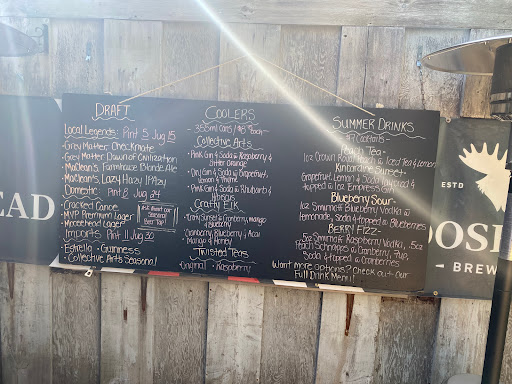 DRAFT
Local Legends: Pint 5 Jug 15
• Grey Matter: Checkmate
• Grey Matter: Dawn of Civilization
• MacLean's Farmhouse Blonde Ale
• MacLean's Lazy Hazy IPAzy
Domestic: Pint 8 Jug 24
• Cracked Canoe
• MVP Premium Lager
• Moosehead Lager
Imports: Pint 11 Jug 30
• Estrella • Guinness
• Collective Arts Seasonal
Ask about our
Seasonal
Beer Tap!
COOLERS
- 355ml cans /
Collective Arts
• Pink Gin & Soda w Raspberry &
Bitter Orange
• Dry Gin & Soda w Grapefruit,
Lemon & Thyme
• Pink Gin & Soda w Rhubarb &
Hibiscus
Crafty Elk
Cranberry, Mango
& Blueberry
• Cranberry, Blueberry & Acai
• Mango & Honey
Twisted Teas
Original • Raspberry
SUMMER DRINKS
Cocktails -
Peach Tea -
1oz Crown Royal Peach w Iced Tea & Lemon
Kincardine Sunset -
Grapefruit, Lemon & Soda layered &
topped w 1oz Empress Gin
Blueberry Sour -
1oz Smirnoff Blueberry Vodka w
Lemonade, Soda & topped w Blueberries
BERRY FIZZ -
.5oz Smirnoff Raspberry Vodka, .5oz
Peach Schnapps w Cranberry, 7up,
Soda & topped w Cranberries
Want more options? Check out our
Full Drink Menu!
EAD
ESTD
OOSE
BREW